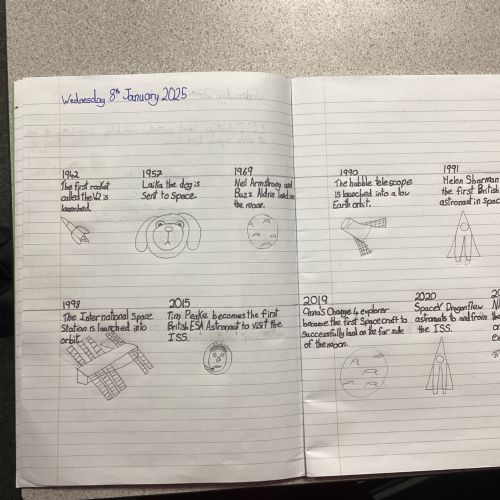 Wednesday 8th January 2025
1942
The first rocket
called the V2 is
launched.
1957
Laika the dog is
Sent to Space.
1969
Neil Armstrong and
Buzz Aldrin land on
the moon.
1990
The hubble telescope
is launched into a low
Earth orbit.
1991
Helen Sharman
the first British
astronaut in Spac
1998
The International Space
Station is launched into
orbit.
2015
Tim Peake becomes the first
British ESA Astronaut to visit the
ISS.
2019
Chinas Change 4 explorer
became the first Spacecraft to
successfully land on the far side
of the moon.
2020
SpaceX Dragon flew
astronauts to and from
the ISS.
20